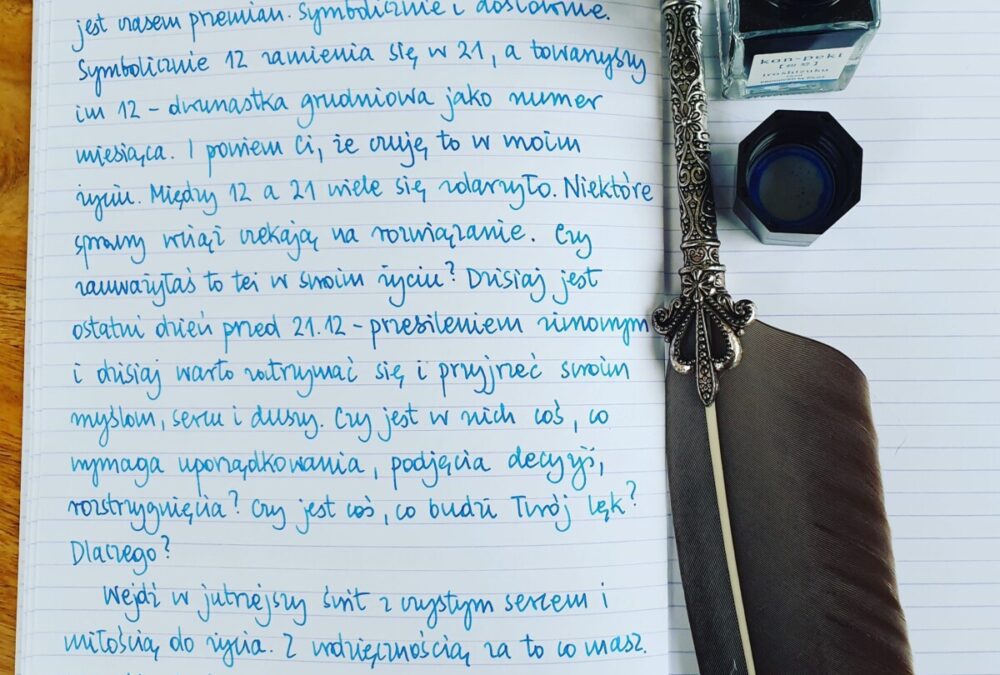 jest czasem przemian. Symbolicznie i dosłownie.
Symbolicznie 12 zamienia się w 21, a towarzyszy
im 12 - dwunastka grudniowa jako numer
miesiąca. I powiem Ci, że czuję to w moim
życiu. Między 12 a 21 wiele się zdarzyło. Niektóre
sprawy wciąż czekają na rozwiązanie. Czy
zauważyłaś to też w swoim życiu? Dzisiaj jest
ostatni dzień przed 21.12 - przesileniem zimowym
i dzisiaj warto zatrzymać się i przyjrzeć swoim
myślom, sercu i duszy. Czy jest w nich coś, co
wymaga uporządkowania, podjęcia decyzji,
rozstrzygnięcia? Czy jest coś, co budzi Twój lęk?
Dlaczego?
Wejdź w jutrzejszy świt z czystym sercem i
miłością do życia. Z wdzięcznością za to co masz.
kon-peki
iroshizuku